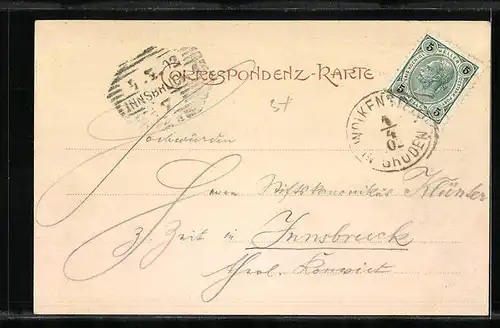 CORRESPONDENZ-KARTE
5 HELLER 5
5 5
INNSBRUCK
WOLKENSTEIN
4/4 02
IN GRÖDEN
Hochwürden
Herrn Stiftskanonikus Klünker
Z. Zeit in Innsbruck
theol. Konvict